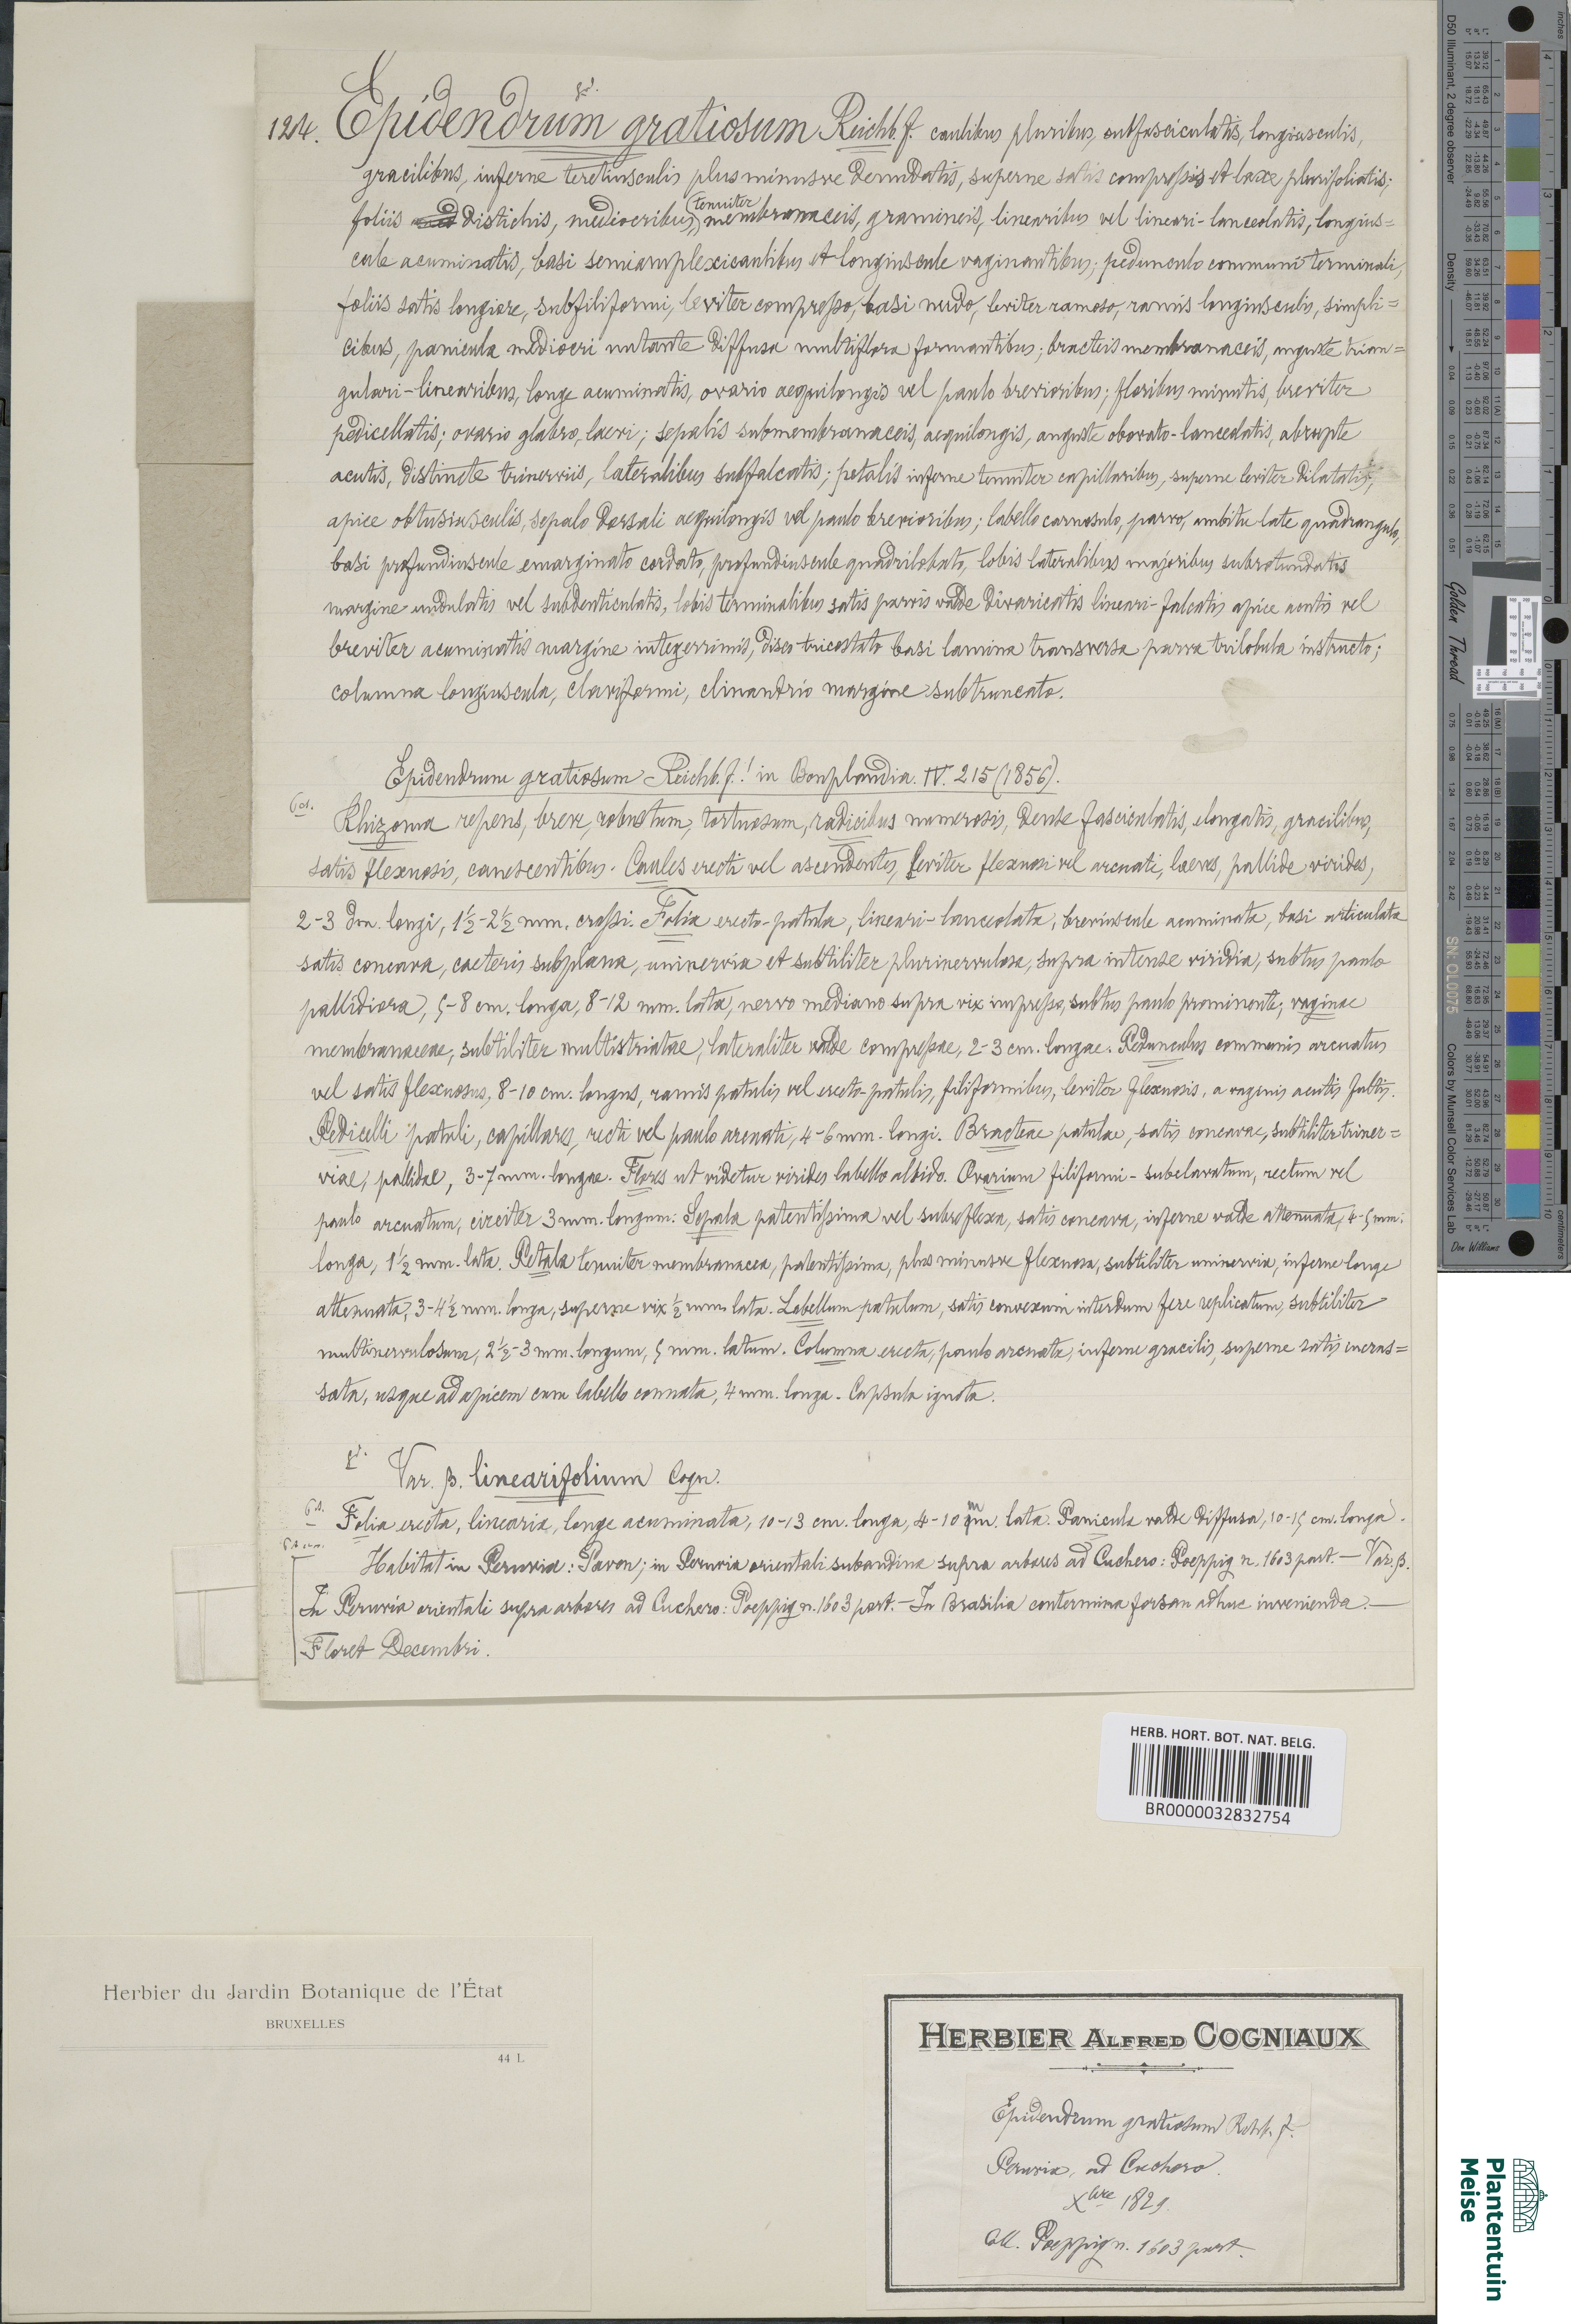 124. Epidendrum gratiosum Reichb. f. caulibus pluribus, subfasciculatis, longiusculis,
gracilibus, inferne teretiusculis plus minusve denudatis, superne satis compressis et laxe plurifoliatis;
foliis distichis, mediocribus, tenuiter membranaceis, gramineis, linearibus vel lineari-lanceolatis, longius=
cule acuminatis, basi semiamplexicaulibus et longiuscule vaginantibus; pedunculo communi terminali,
foliis satis longiore, subfiliformi, leviter compresso, basi nudo, leviter ramoso, ramis longiusculis, simpli=
cibus, panicula mediocri nutante diffusa multiflora formantibus; bracteis membranaceis, anguste trian=
gulari-linearibus, longe acuminatis, ovario aequilongis vel paulo brevioribus; floribus minutis, breviter
pedicellatis; ovario glabro, laevi; sepalis submembranaceis, aequilongis, anguste obovato-lanceolatis, abrupte
acutis, distincte trinerviis, lateralibus subfalcatis; petalis inferne tenuiter capillaribus, superne leviter dilatatis,
apice obtusiusculis, sepalo dorsali aequilongis vel paulo brevioribus; labello carnosulo, parvo, ambitu late quadrangulo,
basi profundiuscule emarginato cordato, profundiuscule quadrilobato, lobis lateralibus majoribus subrotundatis
margine undulatis vel subdenticulatis, lobis terminalibus satis parvis valde divaricatis lineari-falcatis apice acutis vel
breviter acuminatis margine integerrimis, disco tricostato basi lamina transversa parva trilobula instructo;
columna longiuscula, claviformi, clinandrio margine subtruncato.
Epidendrum gratiosum Reichb. f.! in Bonplandia. IV. 215 (1856).
Rhizoma repens, breve, robustum, tortuosum, radicibus numerosis, dense fasciculatis, elongatis, gracilibus,
satis flexuosis, canescentibus. Caules erecti vel ascendentes, leviter flexuosi vel arcuati, laeves, pallide virides,
2-3 dm. longi, 1½-2½ mm. crassi. Folia erecto-patula, lineari-lanceolata, breviuscule acuminata, basi articulata
satis concava, caeteris subplana, uninervia et subtiliter plurinervulosa, supra intense viridia, subtus paulo
pallidiora, 5-8 cm. longa, 8-12 mm. lata, nervo mediano supra vix impresso, subtus paulo prominente; vaginae
membranaceae, subtiliter multistriatae, lateraliter valde compressae, 2-3 cm. longae. Pedunculus communis arcuatus
vel satis flexuosus, 8-10 cm. longus, ramis patulis vel erecto-patulis, filiformibus, leviter flexuosis, a vaginis acutis fultis.
Pedicelli patuli, capillares, recti vel paulo arcuati, 4-6 mm. longi. Bracteae patulae, satis concavae, subtiliter triner=
viae, pallidae, 3-7 mm. longae. Flores ut videtur virides labello albido. Ovarium filiformi-subclavatum, rectum vel
paulo arcuatum, circiter 3 mm. longum. Sepala patentissima vel subreflexa, satis concava, inferne valde attenuata, 4-5 mm.
longa, 1½ mm. lata. Petala tenuiter membranacea, patentissima, plus minusve flexuosa, subtiliter uninervia, inferne longe
attenuata, 3-4½ mm. longa, superne vix ½ mm. lata. Labellum patulum, satis convexum interdum fere replicatum, subtiliter
multinervulosum, 2½-3 mm. longum, 5 mm. latum. Columna erecta, paulo arcuata, inferne gracilis, superne satis incras=
sata, usque ad apicem cum labello connata, 4 mm. longa. Capsula ignota.
Var. β. linearifolium Cogn.
Folia erecta, linearia, longe acuminata, 10-13 cm. longa, 4-10 mm. lata. Panicula valde diffusa, 10-15 cm. longa.
Habitat in Peruvia: Pavon; in Peruvia orientali subandina supra arbores ad Cuchero: Poeppig n. 1603 part. — Var. β.
In Peruvia orientali supra arbores ad Cuchero: Poeppig n. 1603 part. — In Brasilia contermina forsan adhuc invenienda. —
Floret Decembri.
HERB. HORT. BOT. NAT. BELG.
BR0000032832754
Herbier du Jardin Botanique de l'État
BRUXELLES
44 L
HERBIER ALFRED COGNIAUX
Epidendrum gratiosum Rchb. f.
Peruvia, ad Cuchero.
Xbre 1829.
Coll. Poeppig n. 1603 part.
Plantentuin
Meise
Golden Thread
Colors by Munsell Color Services Lab
D50 Illuminant, 2 degree observer
Density
Don Williams
inches
centimeters